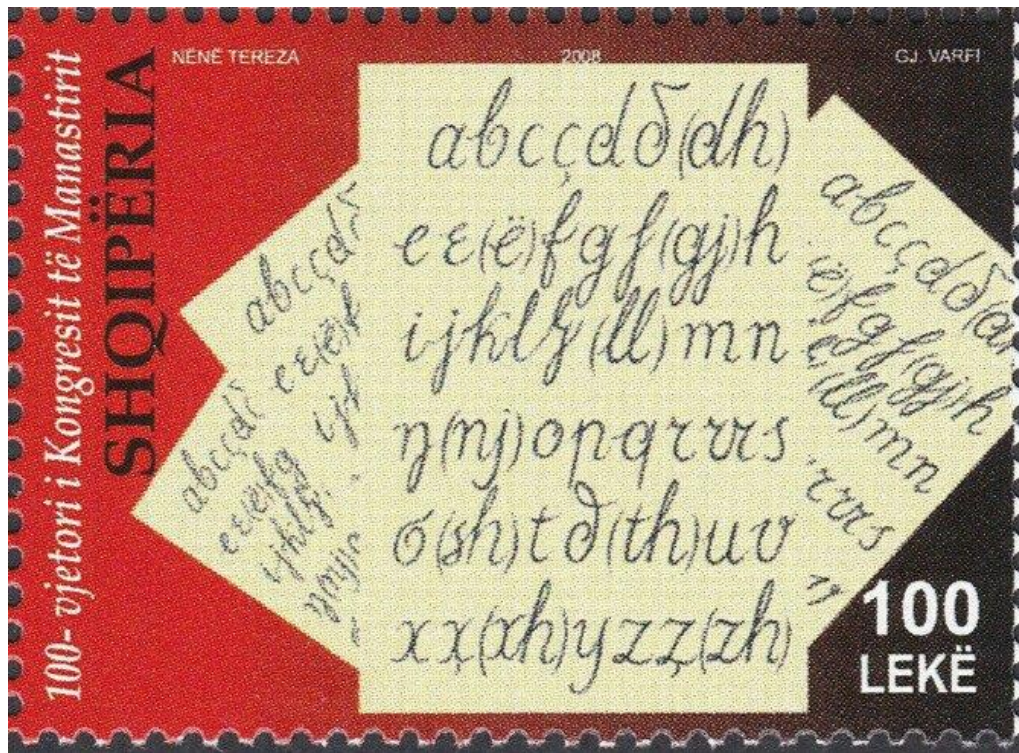 100- vjetori i Kongresit të Manastirit
SHQIPËRIA
NËNË TEREZA 2008 GJ. VARFI
abcçdδ(dh)
eε(ë)fgƒ(gj)h
ijklɮ(ll)mn
ŋ(nj)opqrrrs
σ(sh)tð(th)uv
xx̧(xh)yzz̧(zh)
abccçdδ
eε(ë)f
ijk
abcçdδ
eε(ë)fg
ijklɮ
ŋ(nj)
abcçdδ(dh
(ë)fgƒ(gj)h
(ll)mn
rrrs
100
LEKË